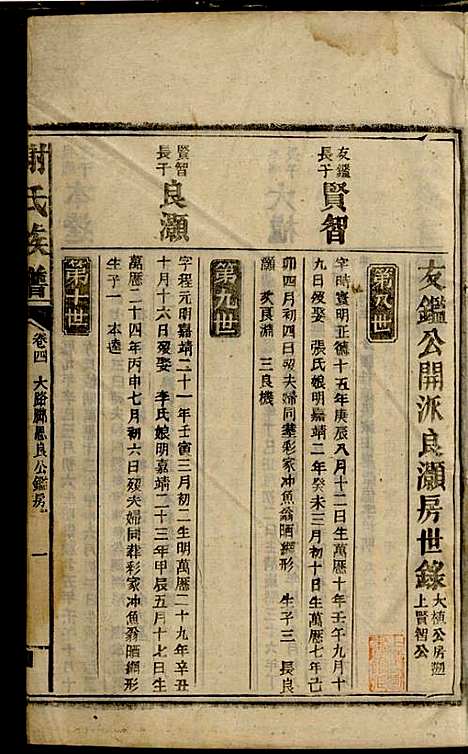 友鑑公開派良灝房世錄
大植公房遡
上賢智公
第八世
友鑑
長子
賢智
字時實明正德十五年庚辰八月十二日生萬歷十年壬午九月十
九日歿娶 張氏娘明嘉靖二年癸未三月初十日生萬歷七年己
卯四月初四日歿夫婦同塟彩家冲魚翁晒網形 生子三 長良
灝 次良淵 三良機
第九世
賢智
長子
良灝
字程元明嘉靖二十一年壬寅三月初二生明萬歷二十九年辛丑
十月十六日歿娶 李氏娘明嘉靖二十三年甲辰五月十七日生
萬歷二十四年丙申七月初六日歿夫婦同葬彩家冲魚翁晒網形
生子一 本逵
第十世
謝氏族譜
卷四
良公鑑房
一